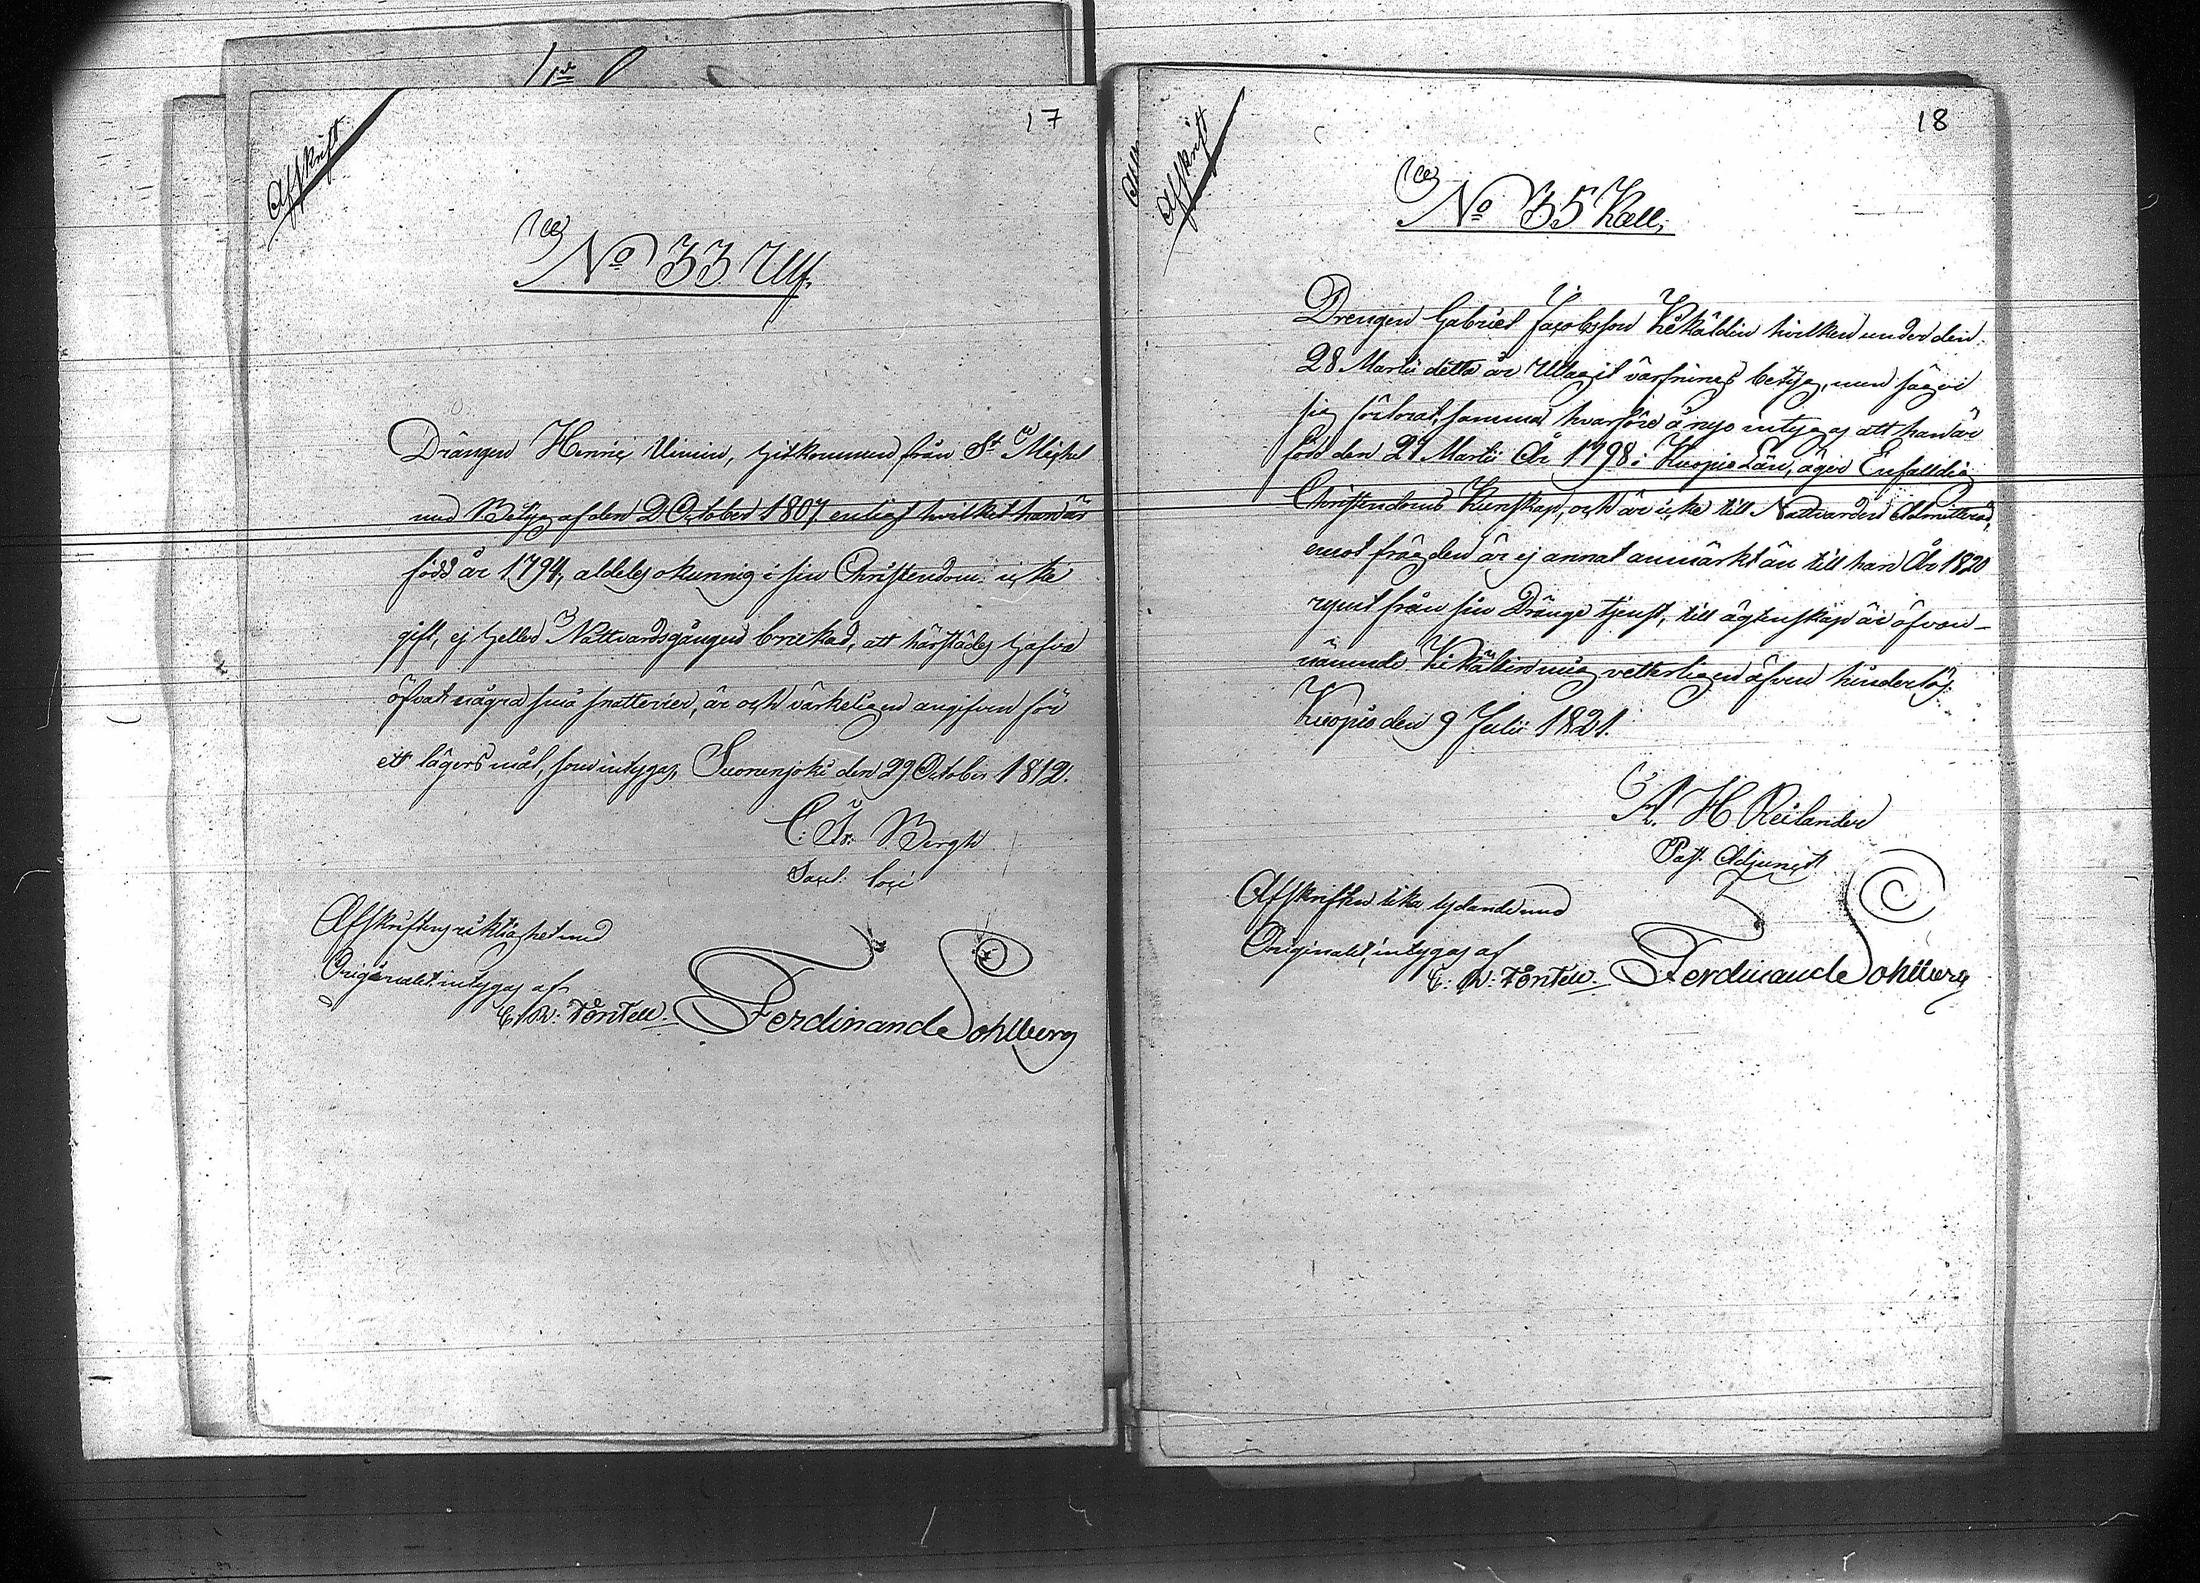 17
Afskrift
No 33 Ulf.
Drängen Henric Vinin, hitkommen från St Michel
med Betyg af den 2 October 1807 enligt hvilket han är
född år 1794, aldeles okunnig i sin Christendom, icke
gift, ej heller Nattvardsgången brukad, att härstädes hafva
öfvat några små snatterier, är och värkeligen angifven för
ett lägersmål, som intygas, Suonenjoki den 29 October 1812.
C. Fr. Bergh
Sacel. loci
Afskriftens riktighet med
Originalet intygas af
E. W. Fontell. Ferdinand Sohlberg
18
Afskrift
No 35 Kall,
Drengen Gabriel Jacobsson Kekäldin hvilken under den
28 Martii detta år Uttagit värfnings betyg, men säger
sig förlorat samma hvarföre å nyo intygas att han är
född den 21 Martii År 1798 i Kuopio Län, äger Enfalldig
Christendoms Kunskap, och är icke till Nattvarden Admitterad,
emot frägden är ej annat anmärkt än till han År 1820
rymt från sin Dränge tjenst, till ägtenskap är öfvan-
nämnde Kekäldin mig vetterligen äfven hinderlös.
Kuopio den 9 Julii 1821.
A. H. Reilander
Past. Adjunct
Afskriften lika lydande med
Originalet, intygas af
E. W. Fontell. Ferdinand Sohlberg